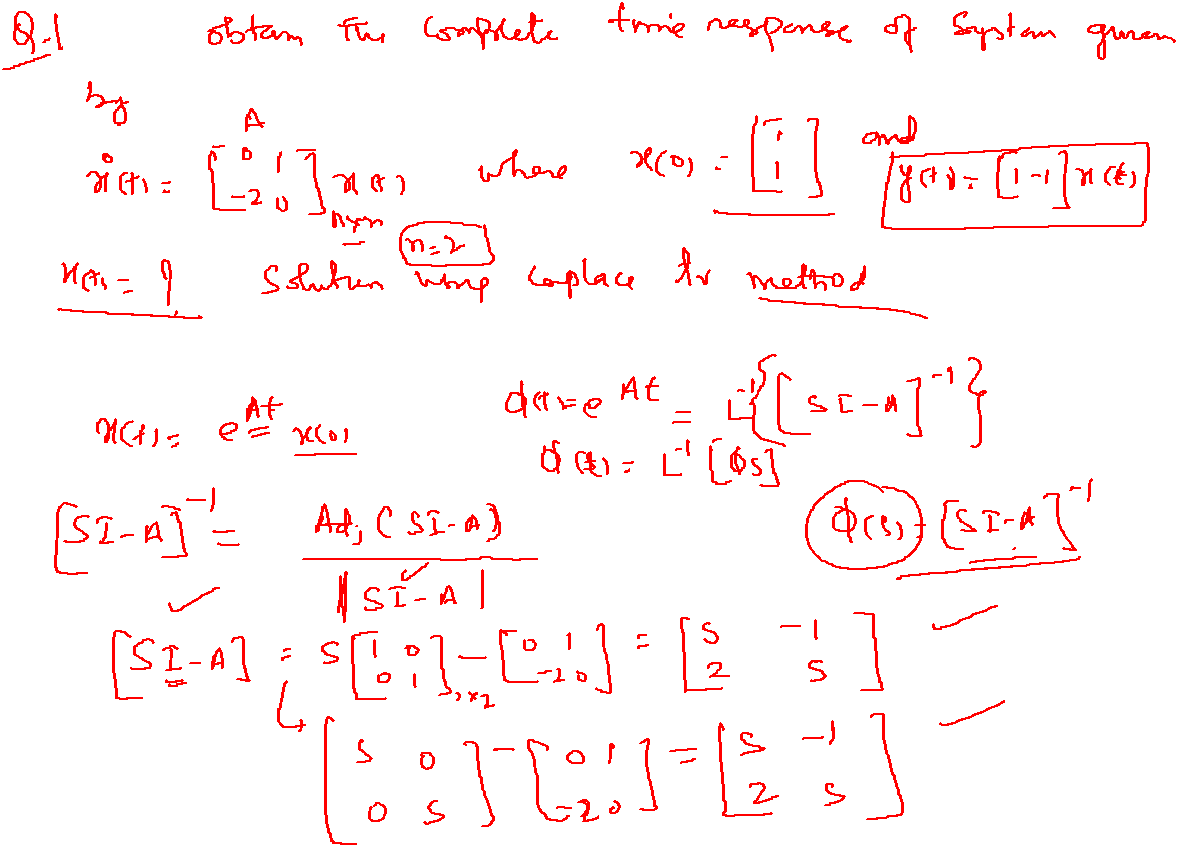 Q.1 obtain the complete time response of system given
by
A
ẋ(t) = [0 1; -2 0] x(t) where x(0) = [1; 1] and y(t) = [1 -1] x(t)
n×n
n=2
x(t) = ? Solution using Laplace tr method
x(t) = e^At x(0) φ(t) = e^At = L^-1{[SI-A]^-1}
φ(t) = L^-1 [φs]
[SI-A]^-1 = Adj (SI-A) / |SI-A| φ(s) = [SI-A]^-1
[SI-A] = S[1 0; 0 1]2×2 - [0 1; -2 0] = [S -1; 2 S]
[S 0; 0 S] - [0 1; -2 0] = [S -1; 2 S]